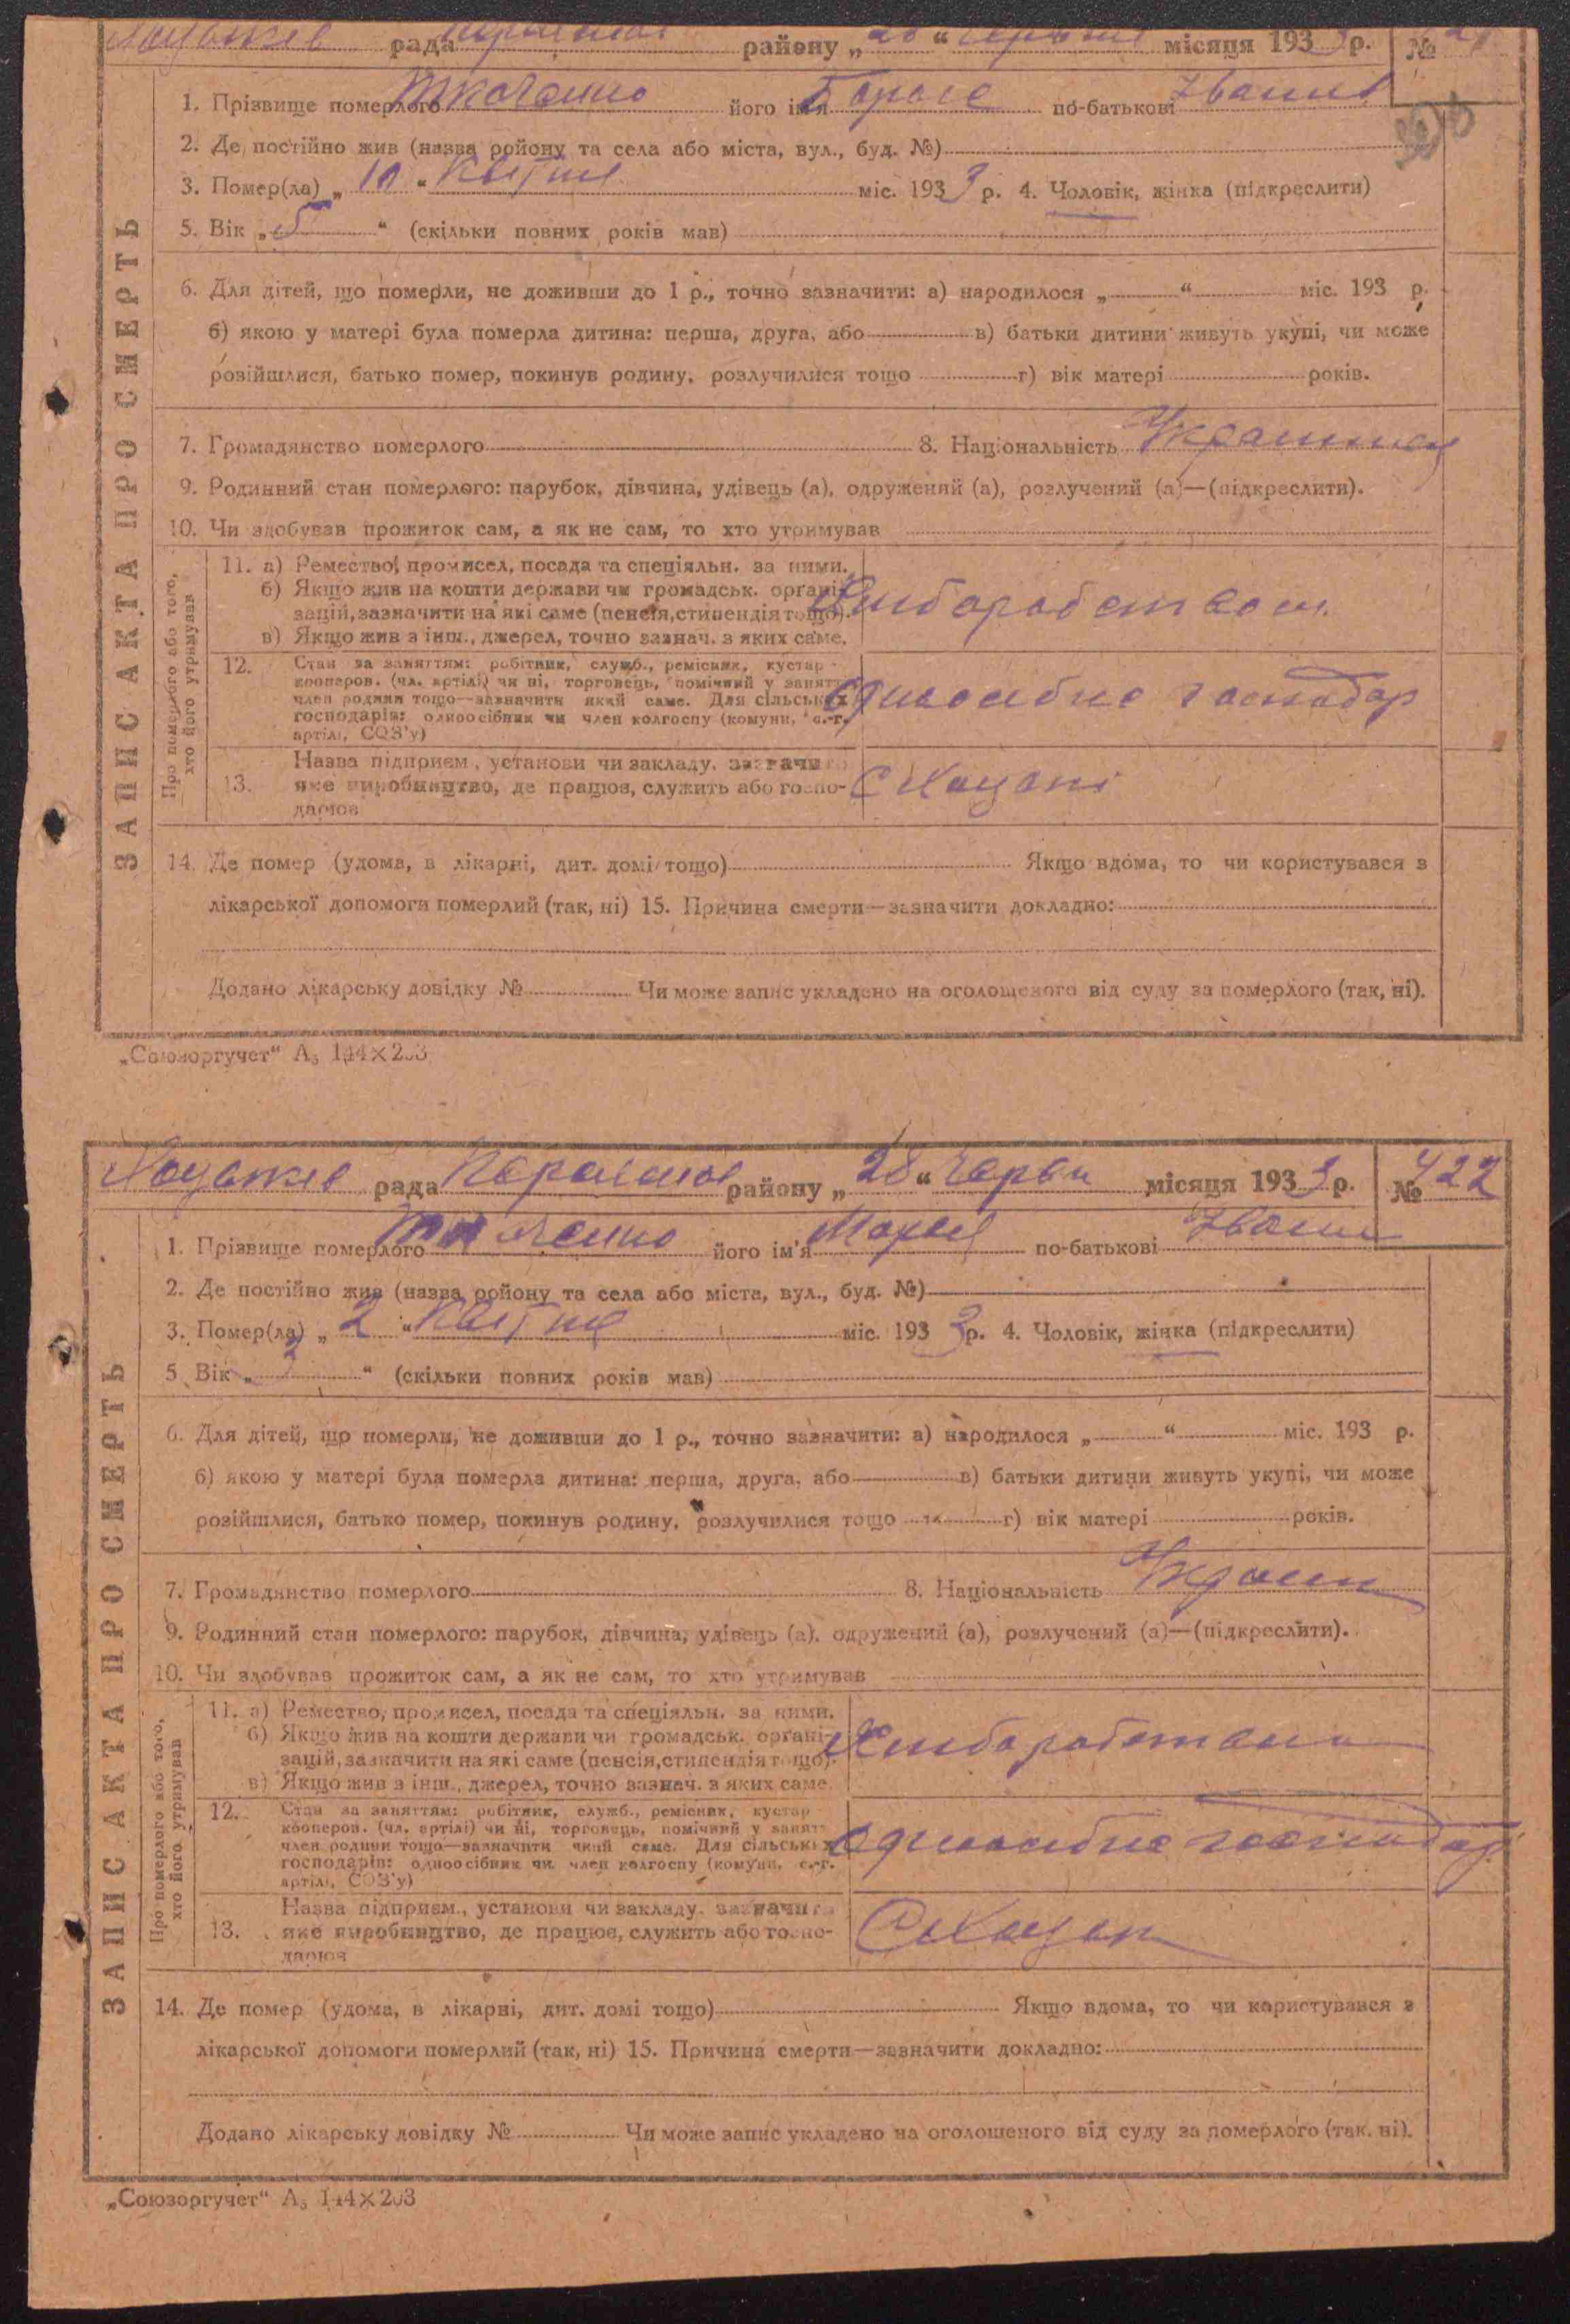 рада району „28“ червня місяця 1933 р. №
1. Прізвище померлого Ткаченко його ім'я по-батькові Іванів
2. Де постійно жив (назва ройону та села або міста, вул., буд. №)
3. Помер(ла) „10“ Квітня міс. 1933 р. 4. Чоловік, жінка (підкреслити)
5. Вік „5“ (скільки повних років мав)
6. Для дітей, що померли, не доживши до 1 р., точно зазначити: а) народилося „ “ міс. 193 р.
б) якою у матері була померла дитина: перша, друга, або в) батьки дитини живуть укупі, чи може
розійшлися, батько помер, покинув родину, розлучилися тощо г) вік матері років.
7. Громадянство померлого 8. Національність Украинец
9. Родинний стан померлого: парубок, дівчина, удівець (а), одружений (а), розлучений (а)—(підкреслити).
10. Чи здобував прожиток сам, а як не сам, то хто утримував
Про померлого або того, хто його утримував
11. а) Ремество, промисел, посада та спеціяльн. за ними.
б) Якщо жив на кошти держави чи громадськ. організацій, зазначити на які саме (пенсія, стипендія тощо).
в) Якщо жив з інш., джерел, точно зазнач. з яких саме.
Хлиборобством
12. Стан за заняттям: робітник, служб., ремісник, кустар
кооперов. (чл. артілі) чи ні, торговець, помічний у занятт
член родини тощо—зазначити який саме. Для сільських
господарів: одноосібник чи член колгоспу (комуни, с.-г.
артілі, СОЗ'у)
Одноосибне господар
13. Назва підприєм., установи чи закладу, зазначити
яке виробництво, де працює, служить або госпо-
дарює
С Коцані
14. Де помер (удома, в лікарні, дит. домі тощо) Якщо вдома, то чи користувався з
лікарської допомоги померлий (так, ні) 15. Причина смерти—зазначити докладно:
Додано лікарську довідку № Чи може запис укладено на оголошеного від суду за померлого (так, ні).
ЗАПИС АКТА ПРО СМЕРТЬ
„Союзоргучет“ А₅ 144×203
рада району „28“ Червн місяця 1933 р. № 422
1. Прізвище померлого Ткаченко його ім'я по-батькові Іванів
2. Де постійно жив (назва ройону та села або міста, вул., буд. №)
3. Помер(ла) „2“ Квітня міс. 1933 р. 4. Чоловік, жінка (підкреслити)
5. Вік „2“ (скільки повних років мав)
6. Для дітей, що померли, не доживши до 1 р., точно зазначити: а) народилося „ “ міс. 193 р.
б) якою у матері була померла дитина: перша, друга, або в) батьки дитини живуть укупі, чи може
розійшлися, батько помер, покинув родину, розлучилися тощо г) вік матері років.
7. Громадянство померлого 8. Національність Украин
9. Родинний стан померлого: парубок, дівчина, удівець (а), одружений (а), розлучений (а)—(підкреслити).
10. Чи здобував прожиток сам, а як не сам, то хто утримував
Про померлого або того, хто його утримував
11. а) Ремество, промисел, посада та спеціяльн. за ними.
б) Якщо жив на кошти держави чи громадськ. організацій, зазначити на які саме (пенсія, стипендія тощо).
в) Якщо жив з інш., джерел, точно зазнач. з яких саме.
Хлиборобством
12. Стан за заняттям: робітник, служб., ремісник, кустар
кооперов. (чл. артілі) чи ні, торговець, помічний у занятт
член родини тощо—зазначити який саме. Для сільських
господарів: одноосібник чи член колгоспу (комуни, с.-г.
артілі, СОЗ'у)
Одноосибне господар
13. Назва підприєм., установи чи закладу, зазначити
яке виробництво, де працює, служить або госпо-
дарює
С Коцан
14. Де помер (удома, в лікарні, дит. домі тощо) Якщо вдома, то чи користувався з
лікарської допомоги померлий (так, ні) 15. Причина смерти—зазначити докладно:
Додано лікарську довідку № Чи може запис укладено на оголошеного від суду за померлого (так, ні).
ЗАПИС АКТА ПРО СМЕРТЬ
„Союзоргучет“ А₅ 144×203